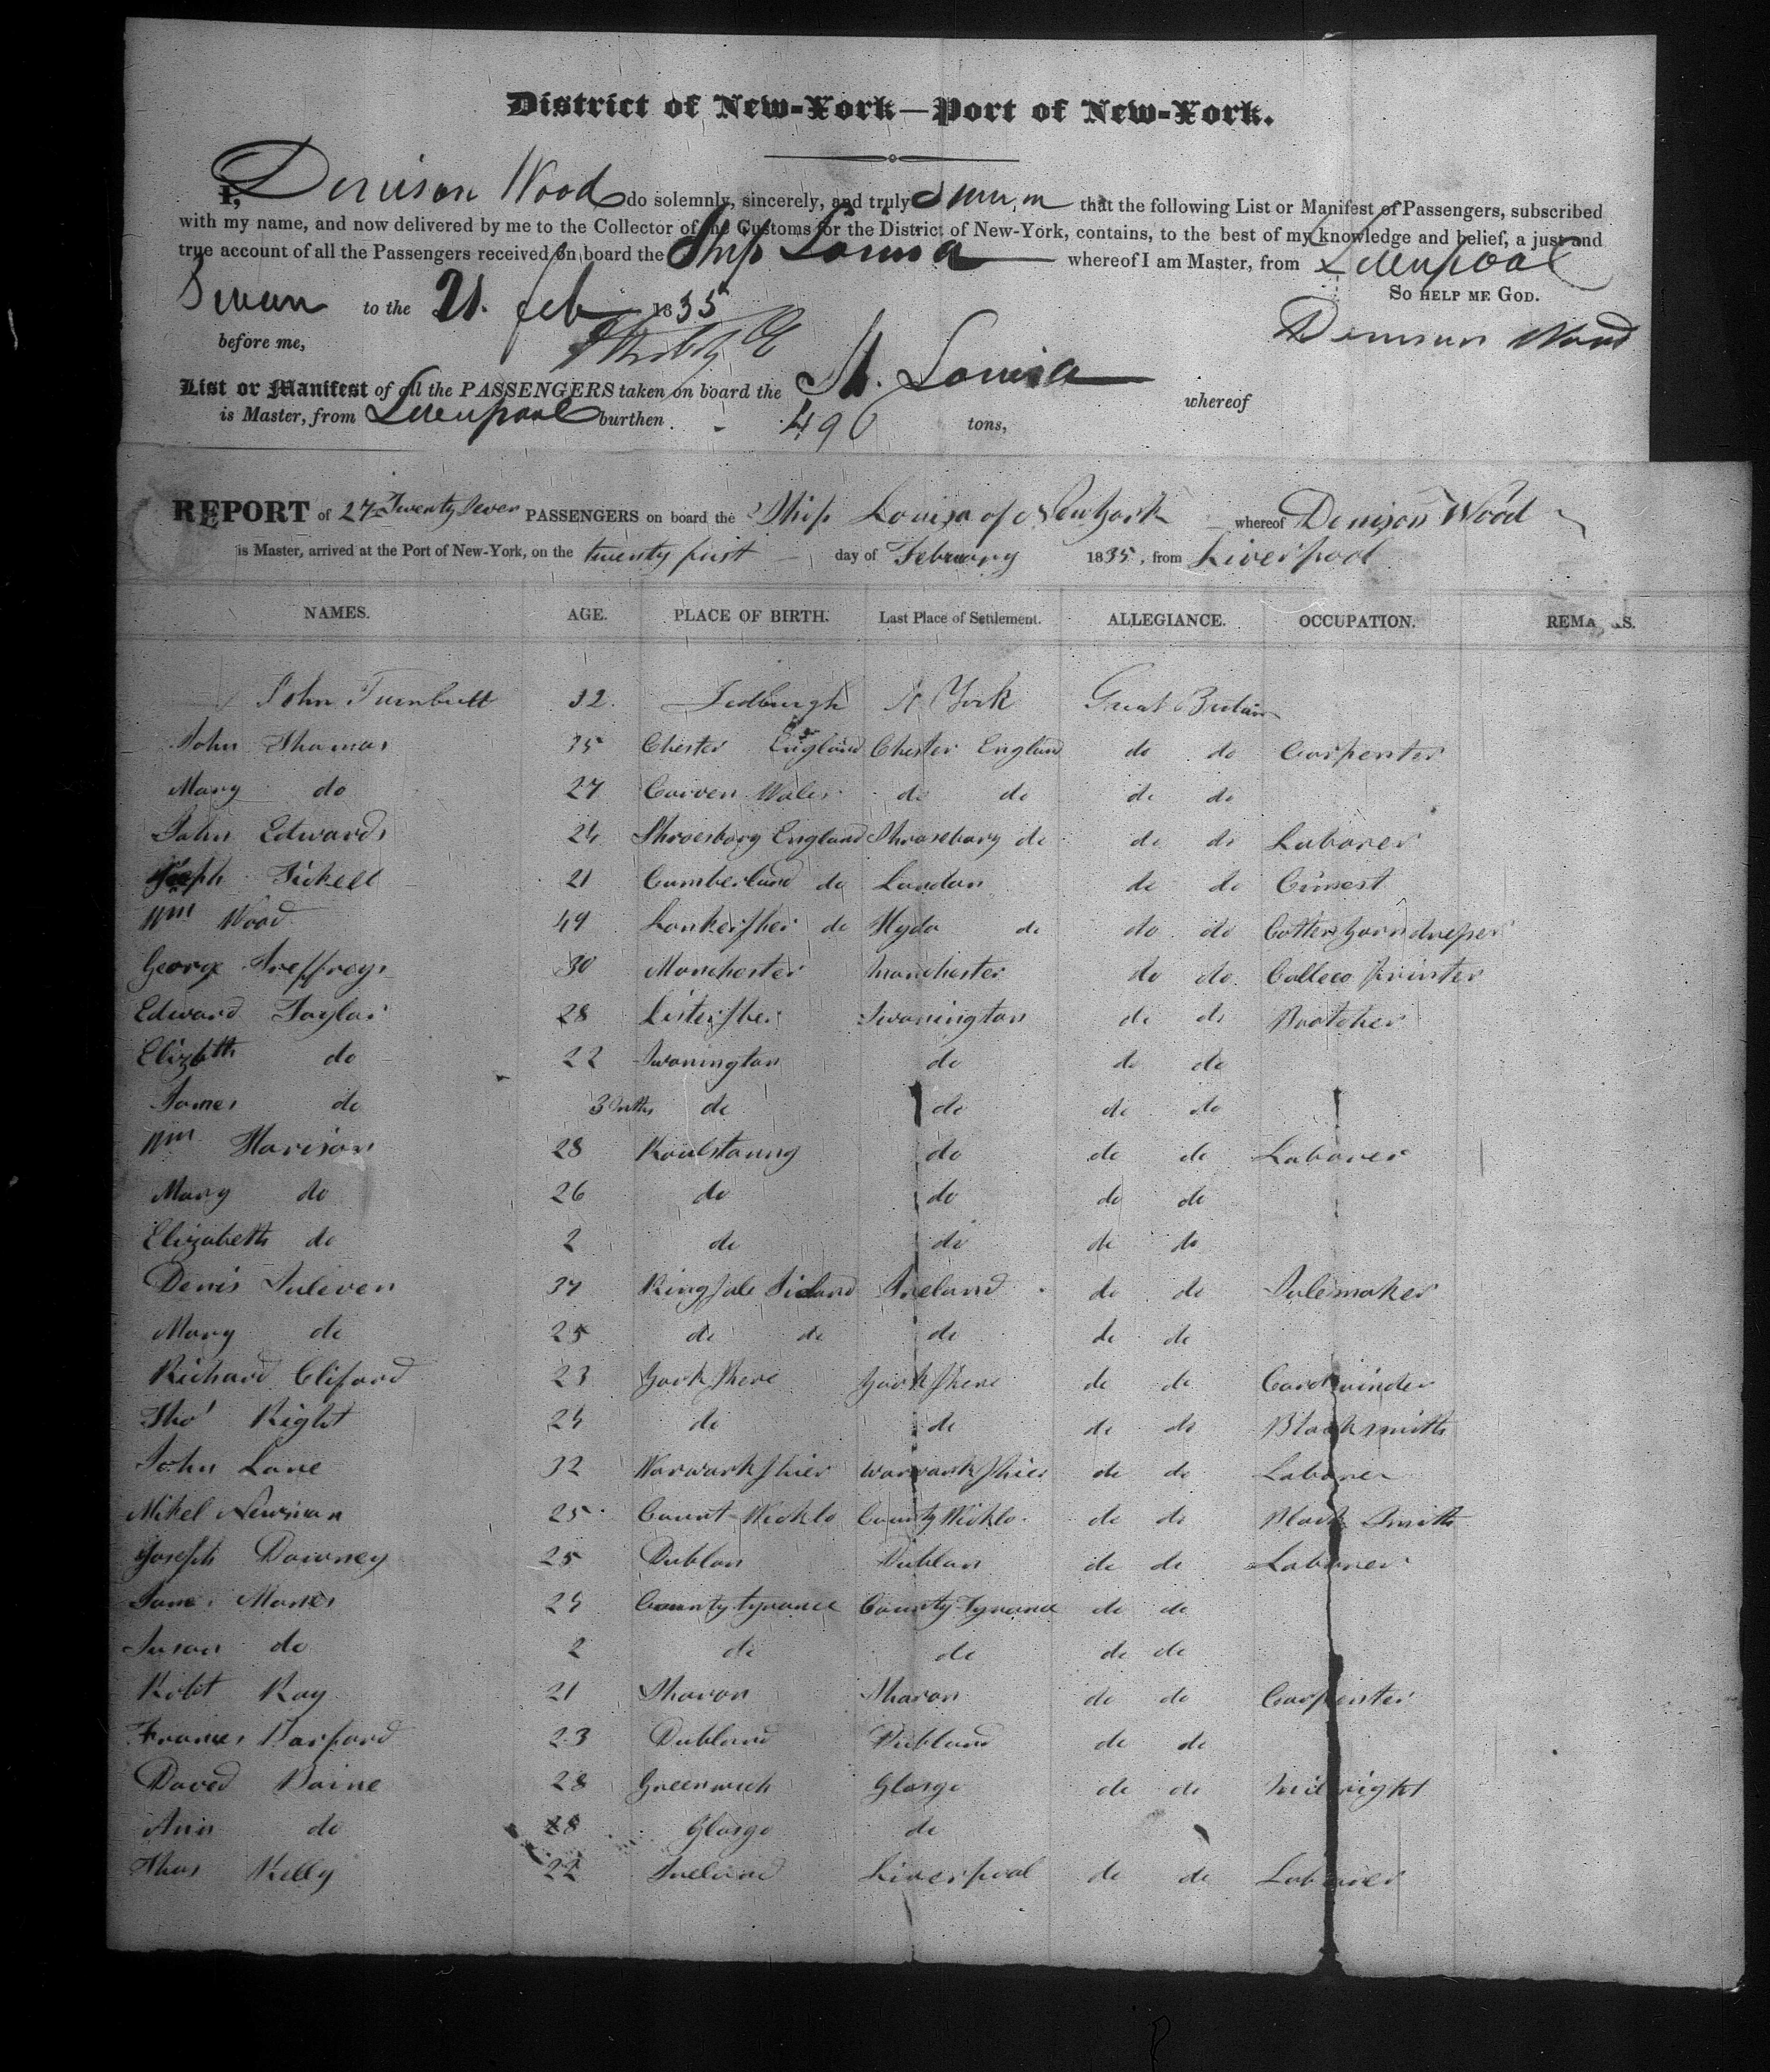 District of New-York—Port of New-York.
I, Denison Wood do solemnly, sincerely, and truly swear that the following List or Manifest of Passengers, subscribed
with my name, and now delivered by me to the Collector of the Customs for the District of New-York, contains, to the best of my knowledge and belief, a just and
true account of all the Passengers received on board the Ship Louisa whereof I am Master, from Liverpool
Sworn to the 21. feb 1835 So help me God.
before me, Denison Wood
List or Manifest of all the PASSENGERS taken on board the Louisa whereof
is Master, from Liverpool burthen 496 tons,
REPORT of 27 Twenty Seven PASSENGERS on board the Ship Louisa of New York whereof Denison Wood
is Master, arrived at the Port of New-York, on the twenty first day of February 1835, from Liverpool
NAMES. AGE. PLACE OF BIRTH. Last Place of Settlement. ALLEGIANCE. OCCUPATION. REMA KS.
John Turnbull 32. Jedburgh N York Great Britain
John Thomas 35 Chester England Chester England do do Carpenter
Mary do 27 Corven Wales do do do do
John Edwards 24 Shroesbury England Shrosebury do do do Laborer
Joseph 21 Cumberland do London do do
Wm Wood 49 Lankershei do Hyda do do do Cotten yarn dresser
George Jreffreys 30 Manchester Manchester do do Calleco printer
Edward Taylor 28 Listershei Swonington do do Bootcher
Elizbth do 22 Swonington do do do
James do 3 mths do do do do
Wm Harison 28 do do do Laborer
Mary do 26 do do do do
Elizabeth do 2 do do do do
Denis Suliven 34 Kingsale Ireland do do Salemaker
Mary do 25 do do do do do
Richard Cliford 23 York Shere York Shere do do Cardwinder
Tho' Right 24 do do do do Blacksmith
John Lane 32 Warwarkshier Warwarkshier do do Laborer
Mikel Newman 25 Count Wicklo County Wicklo do do Black Smith
Joseph Downey 25 Dublan Dublan do do Laborer
James 24 County tyrance County Tyrance do do
Susan do 2 do do do do
Robt Ray 21 Sharon Sharon do do Carpenter
Frances Barford 23 Dubland Dubland do do
Daved Baine 28 Greenwich Glasgo do do Milright
Ann do 28 Glasgo do
Thos Kelly 22 Ireland Liverpool do do Laborer